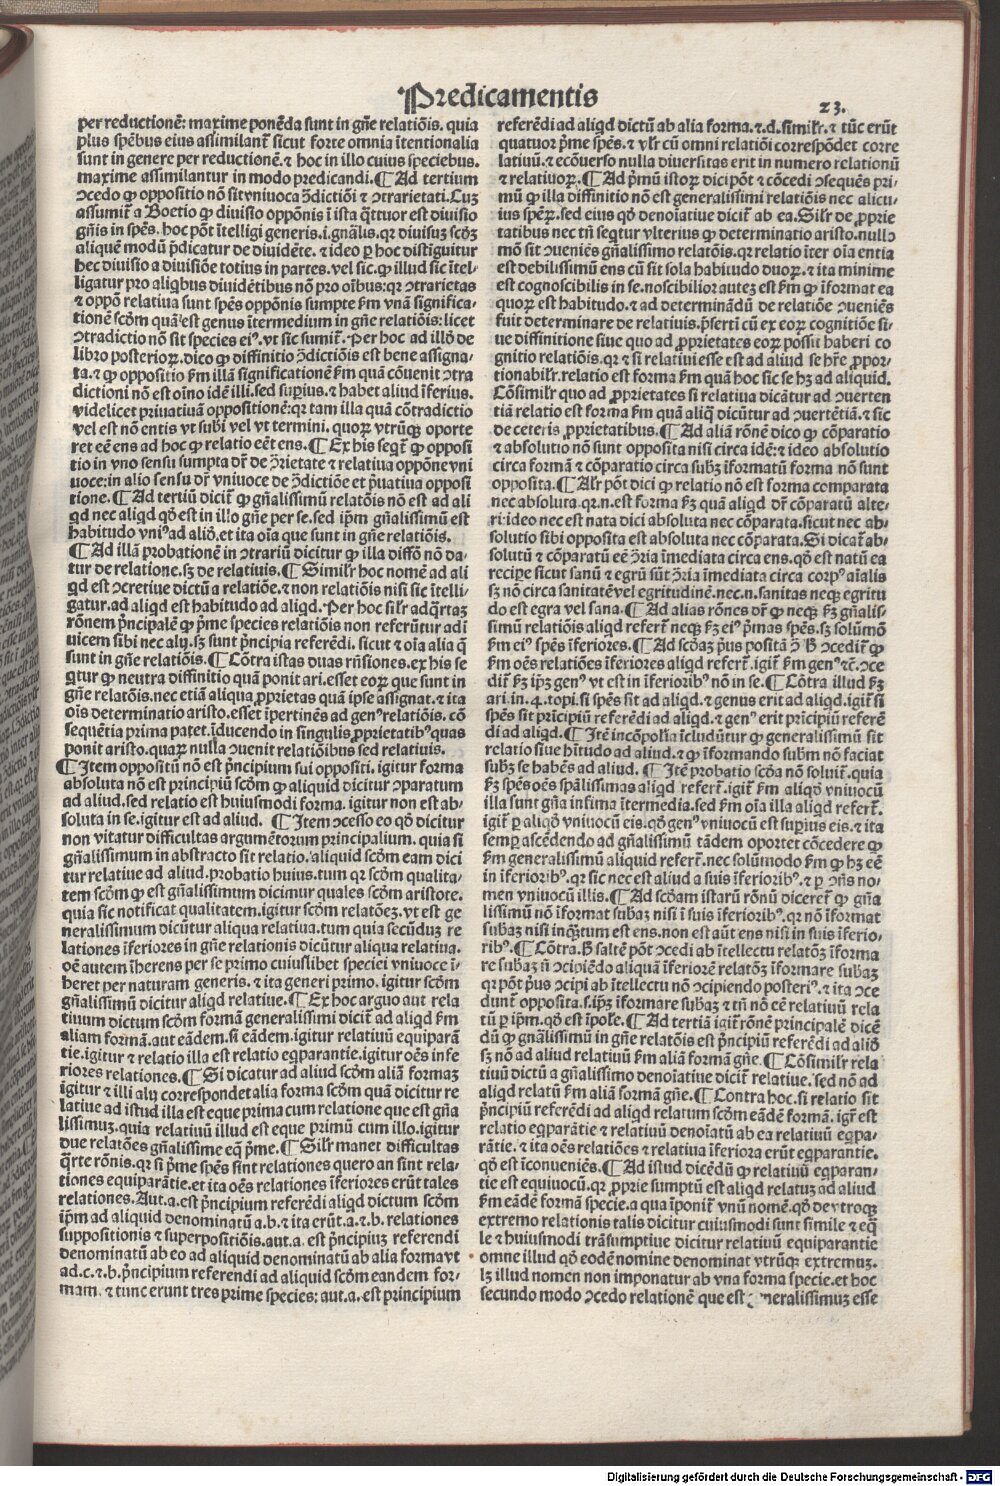 Predicamentis
23.
per reductionē: maxime ponēda sunt in gn̄e relatiōis. quia
plus sp̄ebus eius assimilant̄ sicut forte omnia ītentionalia
sunt in genere per reductionē. ⁊ hoc in illo cuius speciebus.
maxime assimilantur in modo predicandi. ¶ Ad tertium
ꝯcedo ꝙ oppositio nō sit vniuoca ꝯ̄dictiōi ⁊ ꝯtrarietati. Cuꝫ
assumit̄ a Boetio ꝙ diuisio oppōnis ī ista q̄ttuor est diuisio
gn̄is in sp̄es. hoc pōt ītelligi generis .i. gnālis. qꝛ diuisuꝫ scd̄ꝫ
aliquē modū p̄dicatur de diuidēte. ⁊ ideo ꝑ hoc distiguitur
hec diuisio a diuisiōe totius in partes. vel sic. ꝙ illud sic ītel-
ligatur pro aliqbus diuidētibus nō pro oībus: qꝛ ꝯtrarietas
⁊ oppō relatiua sunt sp̄es oppōnis sumpte k̄m vnā significa-
tionē scd̄m quā est genus ītermedium in gn̄e relatiōis: licet
ꝯtradictio nō sit species eiꝰ. vt sic sumit̄. Per hoc ad illō de
libro posterioꝝ. dico ꝙ diffinitio ꝯ̄dictiōis est bene assigna-
ta. ⁊ ꝙ oppositio k̄m illā significationē k̄m quā cōuenit ꝯtra
dictioni nō est oīno idē illi. sed supius. ⁊ habet aliud īferius.
videlicet priuatiuā oppositionē: qꝛ tam illa quā cōtradictio
vel est nō entis vt subi vel vt termini. quoꝝ vtrūqꝫ oporte
ret eē ens ad hoc ꝙ relatio eēt ens. ¶ Ex his seqt̄ ꝙ opposi
tio in vno sensu sumpta dr̄ de ꝯ̄rietate ⁊ relatiua oppōne vni
uoce: in alio sensu dr̄ vniuoce de ꝯ̄dictiōe et p̄uatiua opposi
tione. ¶ Ad tertiū dicit̄ ꝙ gn̄alissimū relatōis nō est ad ali
qd nec aliqd qō est in illo gn̄e per se. sed ip̄m gn̄alissimū est
habitudo vniꝰ ad aliō. et ita oīa que sunt in gn̄e relatiōis.
¶ Ad illā probationē in ꝯtrariū dicitur ꝙ illa diffō nō da-
tur de relatione. sꝫ de relatiuis. ¶ Similr̄ hoc nomē ad ali
qd est ꝯcretiue dictū a relatiōe. ⁊ non relatiōis nisi sic ītelli-
gatur. ad aliqd est habitudo ad aliqd. Per hoc silr̄ ad q̄rtaꝫ
rōnem p̄ncipalē ꝙ p̄me species relatiōis non referūtur ad ī
uicem sibi nec alijs. sꝫ sunt p̄ncipia referēdi. sicut ⁊ oīa alia q̄
sunt in gn̄e relatiōis. ¶ Cōtra istas duas rn̄siones. ex his se
qtur ꝙ neutra diffinitio quā ponit ari. esset eoꝝ que sunt in
gn̄e relatōis. nec etiā aliqua ꝓprietas quā ipse assignat. ⁊ ita
oīs determinatio aristo. esset īpertinēs ad genꝰ relatiōis. cō
sequētia prima patet. īducendo in singulis ꝓprietatibꝰ quas
ponit aristo. quaꝝ nulla ꝯuenit relatiōibus sed relatiuis.
¶ Item oppositū nō est p̄ncipium sui oppositi. igitur forma
absoluta nō est principiū scd̄m ꝙ aliquid dicitur ꝯparatum
ad aliud. sed relatio est huiusmodi forma. igitur non est ab-
soluta in se. igitur est ad aliud. ¶ Item ꝯcesso eo qō dicitur
non vitatur difficultas argumētorum principalium. quia si
gn̄alissimum in abstracto sit relatio. aliquid scd̄m eam dici
tur relatiue ad aliud. probatio huius. tum qꝛ scd̄m qualita-
tem scd̄m ꝙ est gn̄alissimum dicimur quales scd̄m aristote.
quia sic notificat qualitatem. igitur scd̄m relatōeꝫ. vt est ge
neralissimum dicūtur aliqua relatiua. tum quia secūduꝫ re
lationes īferiores in gn̄e relationis dicūtur aliqua relatiua.
oē autem īherens per se primo cuiuslibet speciei vniuoce ī-
heret per naturam generis. ⁊ ita generi primo. igitur scd̄m
gn̄alissimū dicitur aliqd relatiue. ¶ Ex hoc arguo aut rela
tiuum dictum scd̄m formā generalissimi dicit̄ ad aliqd k̄m
aliam formā. aut eādem. si eādem. igitur relatiuū equiparā
tie. igitur ⁊ relatio illa est relatio eqparantie. igitur oēs infe
riores relationes. ¶ Si dicatur ad aliud scd̄m aliā formaꝫ
igitur ⁊ illi alij correspondet alia forma scd̄m quā dicitur re
latiue ad istud illa est eque prima cum relatione que est gn̄a
lissimuꝫ. quia relatiuū illud est eque primū cum illo. igitur
due relatōes gn̄alissime eq̄ p̄me. ¶ Silr̄ manet difficultas
q̄rte rōnis. qꝛ si p̄me sp̄es sint relationes quero an sint rela-
tiones equiparātie. et ita oēs relationes īferiores erūt tales
relationes. Aut .a. est p̄ncipium referēdi aliqd dictum scd̄m
ip̄m ad aliquid denominatū a .b. ⁊ ita erūt .a. ⁊ .b. relationes
suppositionis ⁊ superpositiōis. aut .a. est p̄ncipiuꝫ referendi
denominatū ab eo ad aliquid denominatū ab alia forma vt
ad .c. ⁊ .b. p̄ncipium referendi ad aliquid scd̄m eandem for-
mam. ⁊ tunc erunt tres prime species: aut .a. est principium
referēdi ad aliqd dictū ab alia forma. ⁊ .d. similr̄. ⁊ tūc erūt
quatuor p̄me sp̄es. ⁊ vlr̄ cū omni relatiōi correspōdet corre
latiuū. ⁊ ecōuerso nulla diuersitas erit in numero relationū
⁊ relatiuoꝝ. ¶ Ad p̄mū istoꝝ dici pōt ⁊ cōcedi ꝯsequēs pri-
mū ꝙ illa diffinitio nō est generalissimi relatiōis nec alicu-
ius sp̄eꝝ. sed eius qō denoīatiue dicit̄ ab ea. Silr̄ de ꝓprie
tatibus nec tn̄ seqtur vlterius ꝙ determinatio aristo. nullo
mō sit ꝯueniēs gn̄alissimo relatōis. qꝛ relatio īter oīa entia
est debilissimū ens cū sit sola habitudo duoꝝ. ⁊ ita minime
est cognoscibilis in se. noscibilior auteꝫ est k̄m ꝙ īformat ea
quoꝝ est habitudo. ⁊ ad determinādū de relatiōe ꝯueniēs
fuit determinare de relatiuis. p̄serti cū ex eoꝝ cognitiōe si-
ue diffinitione siue quo ad ꝓprietates eoꝝ possit haberi co
gnitio relatiōis. qꝛ ⁊ si relatiui esse est ad aliud se hr̄e ꝓpor-
tionabilr̄. relatio est forma k̄m quā hoc sic se hꝫ ad aliquid.
Cōsimilr̄ quo ad ꝓprietates si relatiua dicātur ad ꝯuerten
tiā relatio est forma k̄m quā aliq̄ dicūtur ad ꝯuertētiā. ⁊ sic
de ceteris ꝓprietatibus. ¶ Ad aliā rōnē dico ꝙ cōparatio
⁊ absolutio nō sunt opposita nisi circa idē: ⁊ ideo absolutio
circa formā ⁊ cōparatio circa subꝫ īformatū forma nō sunt
opposita. ¶ Alr̄ pōt dici ꝙ relatio nō est forma comparata
nec absoluta. qꝛ .n. est forma k̄ꝫ quā aliqd dr̄ cōparatū alte-
ri: ideo nec est nata dici absoluta nec cōparata. sicut nec ab-
solutio sibi opposita est absoluta nec cōparata. Si dicat̄ ab-
solutū ⁊ cōparatū eē ꝯ̄ria īmediata circa ens. qō est natū ea
recipe sicut sanū ⁊ egrū sūt ꝯ̄ria īmediata circa corpꝰ aīalis
sꝫ nō circa sanitatē vel egritudinē. nec .n. sanitas neqꝫ egritu
do est egra vel sana. ¶ Ad alias rōnes dr̄ ꝙ neqꝫ k̄ꝫ gn̄alis-
simū relatiōis aliqd refert̄ neqꝫ k̄ꝫ eiꝰ p̄mas sp̄es. sꝫ solūmō
k̄m eiꝰ sp̄es īferiores. ¶ Ad scd̄aꝫ p̄us positā ꝯ̄ h̄ ꝯcedit̄ ꝙ
k̄m oēs relatiōes īferiores aliqd refert̄. igit̄ k̄m genꝰ ⁊c̄. ꝯce
dit̄ k̄ꝫ ip̄ꝫ genꝰ vt est in īferioribꝰ nō in se. ¶ Cōtra illud k̄ꝫ
ari. in .4. topi. si sp̄es sit ad aliqd. ⁊ genus erit ad aliqd. igit̄ si
sp̄es sit pricipiū referēdi ad aliqd. ⁊ genꝰ erit p̄icipiū referē
di ad aliqd. ¶ Itē incōpossīa īcludūtur ꝙ generalissimū sit
relatio siue hītudo ad aliud. ⁊ ꝙ īformando subm̄ nō faciat
subꝫ se habēs ad aliud. ¶ Itē probatio scd̄a nō soluit̄. quia
k̄ꝫ sp̄es oēs sp̄alissimas aliqd refert̄. igit̄ k̄m aliqō vniuocū
illa sunt gn̄a infima ītermedia. sed k̄m oīa illa aliqd refert̄.
igit̄ ꝑ aliqō vniuocū eis. qō genꝰ vniuocū est supius eis. ⁊ ita
semp ascēdendo ad gn̄alissimū tādem oportet cōcedere ꝙ
k̄m generalissimū aliquid refert̄. nec solūmodo k̄m ꝙ hꝫ eē
in īferioribꝰ. qꝛ sic nec est aliud a suis īferioribꝰ. ⁊ ꝑ ꝯn̄s no-
men vniuocū illis. ¶ Ad scd̄am istarū rōnū diceret̄ ꝙ gn̄a
lissimū nō īformat subaꝫ nisi ī suis īferioribꝰ. qꝛ nō īformat
subaꝫ nisi inqtum est ens. non est aūt ens nisi in suis īferio-
ribꝰ. ¶ Cōtra. h̄ saltē pōt ꝯcedi ab ītellectu relatōꝫ īforma
re subaꝫ n̄ ꝯcipiēdo aliquā īferiorē relatōꝫ īformare subaꝫ
qꝛ pōt p̄us ꝯcipi ab ītellectu nō ꝯcipiendo posteriꝰ. ⁊ ita ꝯce
dunt̄ opposita. s. ip̄ꝫ īformare subaꝫ ⁊ tn̄ nō eē relatiuū rela
tū ꝑ ip̄m. qō est īpoꝉe. ¶ Ad tertiā igit̄ rōnē principalē dicē
dū ꝙ gnālissimū in gn̄e relatōis est p̄ncipiū referēdi ad aliō
sꝫ nō ad aliud relatiuū k̄m aliā formā gn̄e. ¶ Cōsimilr̄ rela
tiuū dictū a gn̄alissimo denoīatiue dicit̄ relatiue. sed nō ad
aliqd relatū k̄m aliā formā gn̄e. ¶ Contra hoc. si relatio sit
p̄ncipiū referēdi ad aliqd relatum scd̄m eādē formā. igr̄ est
relatio eqparātie ⁊ relatiuū denoīatū ab ea relatiuū eqpa-
rātie. ⁊ ita oēs relatiōes ⁊ relatiua īferiora erūt eqparantie.
qō est īconueniēs. ¶ Ad istud dicēdū ꝙ relatiuū eqparan-
tie est equiuocū. qꝛ ꝓprie sumptū est aliqd relatuꝫ ad aliud
k̄m eādē formā specie. a qua īponit̄ vnū nomē. qō de vtroqꝫ
extremo relationis talis dicitur cuiusmodi sunt simile ⁊ eq̄
le ⁊ huiusmodi trāsumptiue dicitur relatiuū equiparantie
omne illud qō eodē nomine denominat vtrūqꝫ extremuꝫ.
lꝫ illud nomen non imponatur ab vna forma specie. et hoc
secundo modo ꝯcedo relationē que est generalissimuꝫ esse
Digitalisierung gefördert durch die Deutsche Forschungsgemeinschaft - DFG